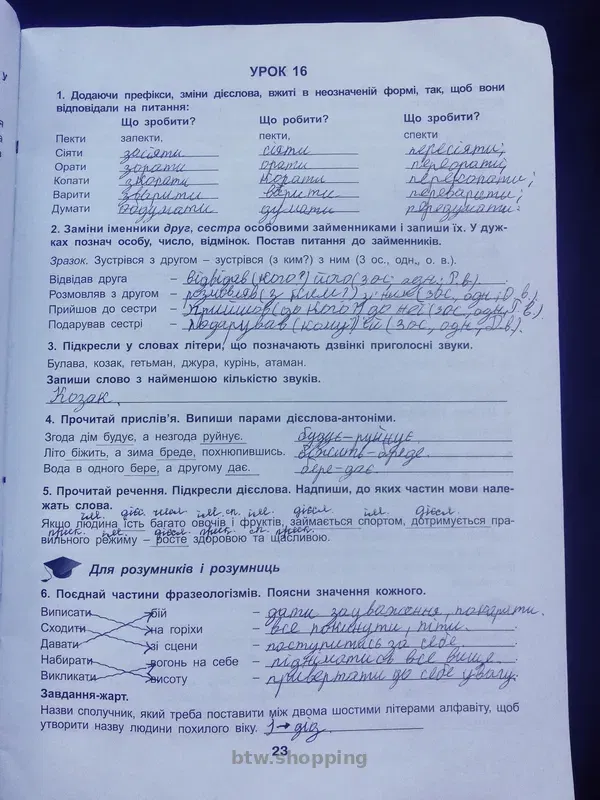 УРОК 16
1. Додаючи префікси, зміни дієслова, вжиті в неозначеній формі, так, щоб вони
відповідали на питання:
Що зробити? Що робити? Що зробити?
Пекти запекти, пекти, спекти
Сіяти засіяти сіяти пересіяти;
Орати зорати орати переорати;
Копати
Варити зварити варити переварити;
Думати подумати думати передумати.
2. Заміни іменники друг, сестра особовими займенниками і запиши їх. У дуж-
ках познач особу, число, відмінок. Постав питання до займенників.
Зразок. Зустрівся з другом – зустрівся (з ким?) з ним (3 ос., одн., о. в.).
Відвідав друга – відвідав (кого?) його (3 ос; одн; Р. в.)
Розмовляв з другом – розмовляв (з ким?) з ним (3 ос, одн; О. в.)
Прийшов до сестри – прийшов (до кого?) до неї (3 ос; одн; Р. в.)
Подарував сестрі – подарував (кому?) їй (3 ос, одн; Д. в.)
3. Підкресли у словах літери, що позначають дзвінкі приголосні звуки.
Булава, козак, гетьман, джура, курінь, атаман.
Запиши слово з найменшою кількістю звуків.
Козак.
4. Прочитай прислів'я. Випиши парами дієслова-антоніми.
Згода дім будує, а незгода руйнує. будує – руйнує
Літо біжить, а зима бреде, похнюпившись. біжить – бреде
Вода в одного бере, а другому дає. бере – дає
5. Прочитай речення. Підкресли дієслова. Надпиши, до яких частин мови нале-
жать слова.
ім. дієс. ім. сп. ім. дієсл. ім. дієсл.
Якщо людина їсть багато овочів і фруктів, займається спортом, дотримується пра-
прик. ім. дієсл. прик. сп. прик.
вильного режиму – росте здоровою та щасливою.
Для розумників і розумниць
6. Поєднай частини фразеологізмів. Поясни значення кожного.
Виписати бій – дати зауваження, покарати.
Сходити на горіхи – все покинути, піти.
Давати зі сцени – поступитись за себе.
Набирати вогонь на себе – підніматися все вище.
Викликати висоту – привертати до себе увагу.
Завдання-жарт.
Назви сполучник, який треба поставити між двома шостими літерами алфавіту, щоб
утворити назву людини похилого віку. І → дід.
23
btw.shopping